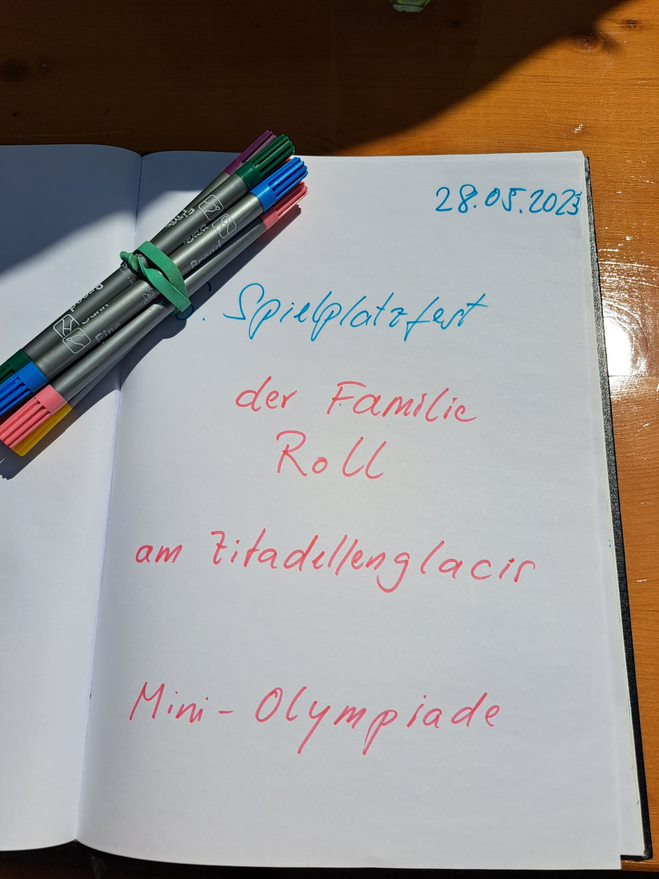 28.05.2023
. Spielplatzfest
der Familie
Roll
am Zitadellenglacis
Mini-Olympiade